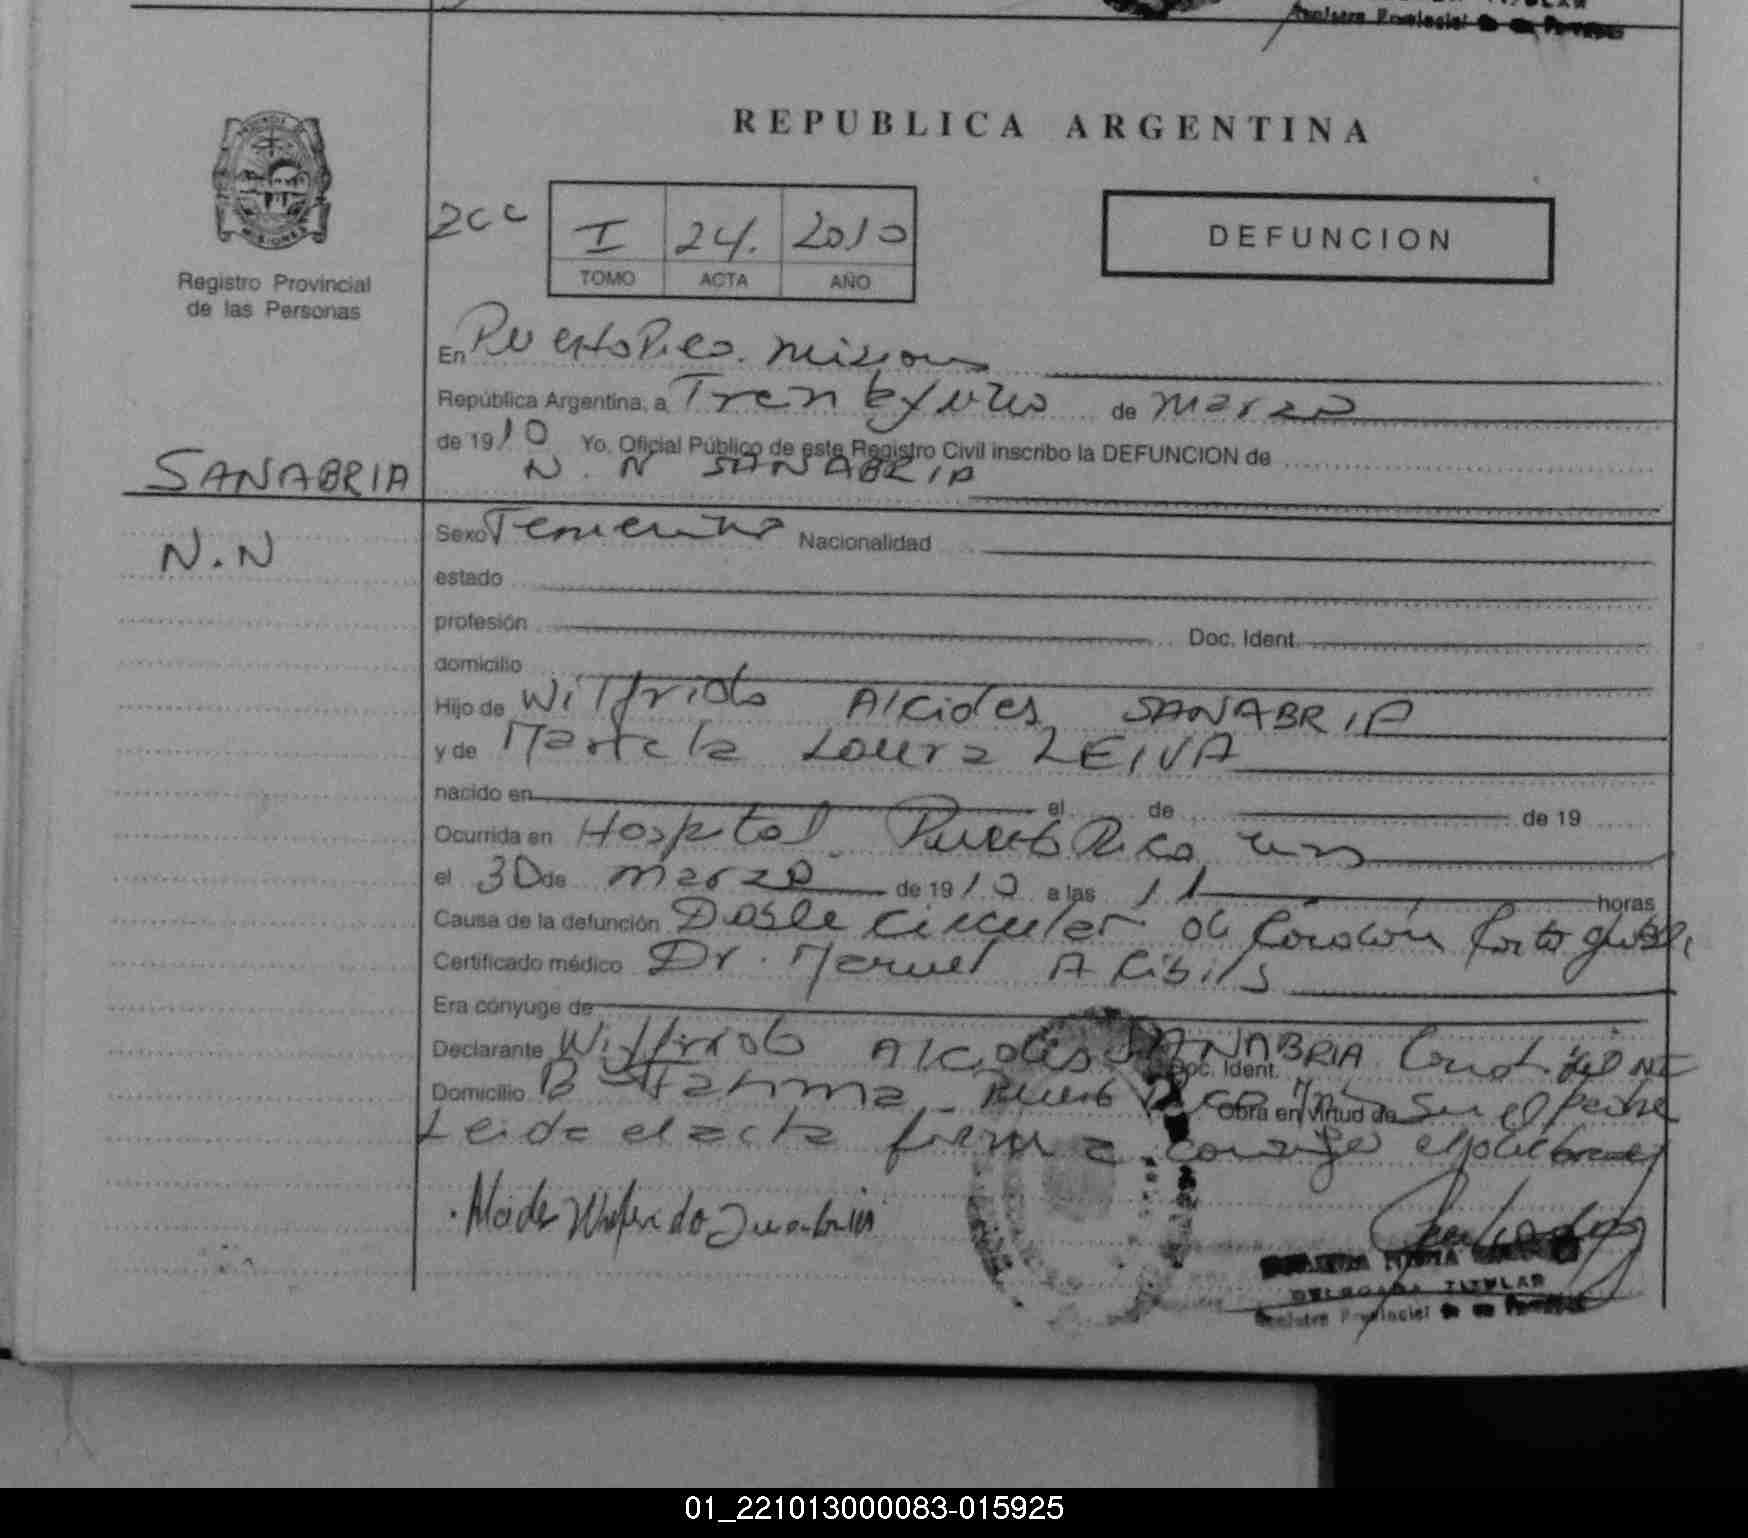 Registro Provincial
REPUBLICA ARGENTINA
I 24. 2010
TOMO ACTA AÑO
DEFUNCION
MISIONES
Registro Provincial
de las Personas
En Puerto Rico. Misiones
República Argentina, a Treinta y uno de marzo
de 19 10 Yo, Oficial Público de este Registro Civil inscribo la DEFUNCION de
SANABRIA
N. N SANABRIA
N.N
Sexo Femenino Nacionalidad
estado
profesión Doc. Ident.
domicilio
Hijo de Wilfrido Alcides SANABRIA
y de Marcela Laura LEIVA
nacido en el de de 19
Ocurrida en Hospital Puerto Rico
el 30 de marzo de 19 10 a las 11 horas
Causa de la defunción Doble circular de Cordón
Certificado médico Dr. Manuel
Era cónyuge de
Declarante Wilfrido Alcides SANABRIA
Doc. Ident.
Domicilio B Fatima Puerto Rico Obra en virtud de Ser el padre
Leida el acta firma conmigo
DELEGADA TITULAR
Registro Provincial de las Personas
01_221013000083-015925